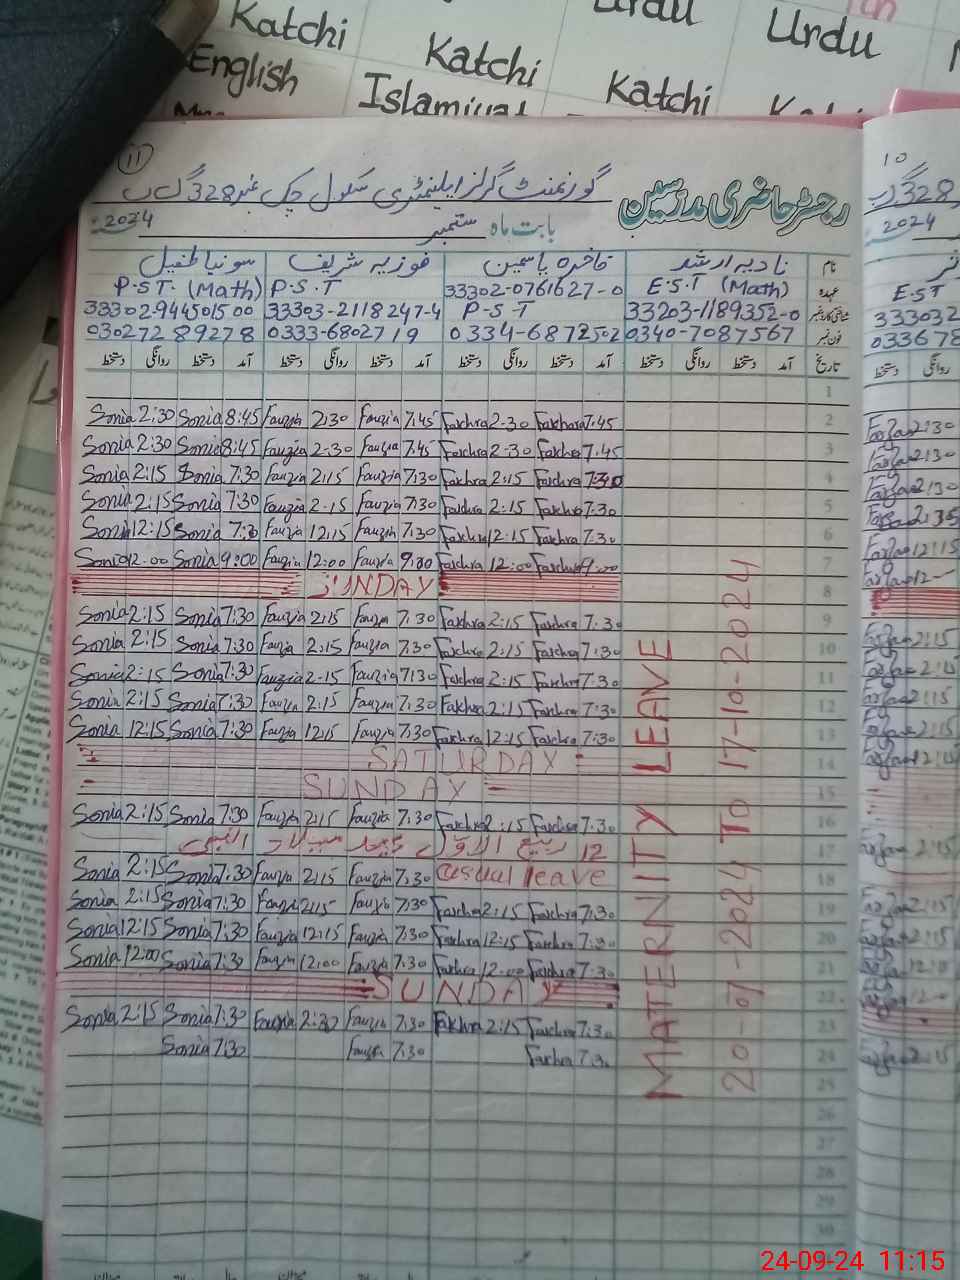 Katchi
English
Katchi
Islamiyat
Urdu
Katchi
Urdu
11
گورنمنٹ گرلز ایلیمنٹری سکول چک نمبر 328 گ ب
رجسٹر حاضری مدرسین
بابت ماہ ستمبر 2024
نام نادیہ ارشد فاخرہ یاسمین فوزیہ شریف سونیا طفیل
عہدہ E.S.T (Math) 33302-0761627-0 P.S.T P.S.T. (Math)
شناختی کارڈ نمبر 33203-1189352-0 P-S-T 33303-2118247-4 33302944501500
فون نمبر 0340-7087567 0334-6872502 0333-6802719 030272 89278
تاریخ آمد دستخط روانگی دستخط آمد دستخط روانگی دستخط آمد دستخط روانگی دستخط آمد دستخط روانگی دستخط
1
Sonia 2:30 Sonia 8:45 Fauzia 2:30 Fauzia 7:45 Fakhra 2-30 Fakhra 7.45 2
Sonia 2:30 Sonia 8:45 Fauzia 2-30 Fauzia 7:45 Fakhra 2-30 Fakhra 7.45 3
Sonia 2:15 Sonia 7:30 Fauzia 2:15 Fauzia 7:30 Fakhra 2:15 Fakhra 7:30 4
Sonia 2:15 Sonia 7:30 Fauzia 2-15 Fauzia 7:30 Fakhra 2:15 Fakhra 7.30 5
Sonia 12:15 Sonia 7:30 Fauzia 12:15 Fauzia 7.30 Fakhra 12:15 Fakhra 7.30 6
Sonia 12:00 Sonia 9:00 Fauzia 12:00 Fauzia 9:00 Fakhra 12:00 Fakhra 9:00 7
SUNDAY 8
Sonia 2:15 Sonia 7:30 Fauzia 2:15 Fauzia 7.30 Fakhra 2:15 Fakhra 7:30 9
Sonia 2:15 Sonia 7:30 Fauzia 2:15 Fauzia 7:30 Fakhra 2:15 Fakhra 7:30 10
Sonia 2:15 Sonia 7:30 Fauzia 2-15 Fauzia 7:30 Fakhra 2:15 Fakhra 7.30 11
Sonia 2:15 Sonia 7:30 Fauzia 2:15 Fauzia 7:30 Fakhra 2:15 Fakhra 7:30 12
Sonia 12:15 Sonia 7:30 Fauzia 12:15 Fauzia 7:30 Fakhra 12:15 Fakhra 7:30 13
SATURDAY 14
SUNDAY 15
Sonia 2:15 Sonia 7:30 Fauzia 2:15 Fauzia 7.30 Fakhra 2:15 Fakhra 7.30 16
12 ربیع الاول عید میلاد النبی 17
Sonia 2:15 Sonia 7:30 Fauzia 2:15 Fauzia 7:30 casual leave 18
Sonia 2:15 Sonia 7:30 Fauzia 2:15 Fauzia 7:30 Fakhra 2:15 Fakhra 7:30 19
Sonia 12:15 Sonia 7:30 Fauzia 12:15 Fauzia 7:30 Fakhra 12:15 Fakhra 7:30 20
Sonia 12:00 Sonia 7:30 Fauzia 12:00 Fauzia 7.30 Fakhra 12:00 Fakhra 7:30 21
SUNDAY 22
Sonia 2:15 Sonia 7:30 Fauzia 2:30 Fauzia 7:30 Fakhra 2:15 Fakhra 7:30 23
Sonia 7:30 Fauzia 7:30 Fakhra 7:30 24
25
26
27
28
29
30
MATERNITY LEAVE
20-7-2024 TO 17-10-2024
10
328 گ ب
2024
EST
333032
033678
روانگی دستخط
2:30
2:30
2:30
2:35
12:15
2:15
2:15
2:15
2:15
24-09-24 11:15